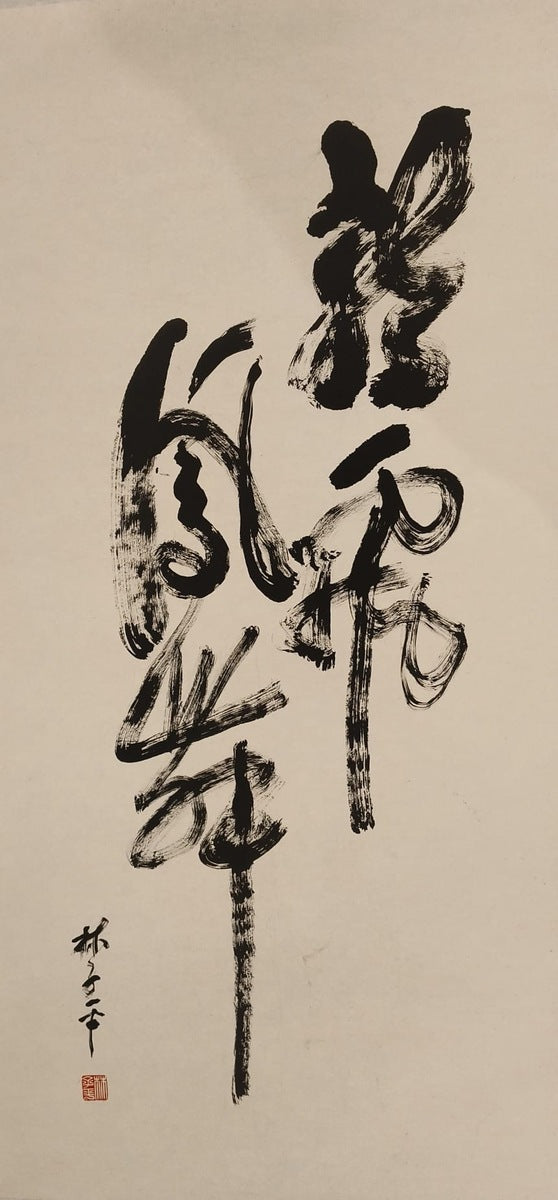 龍飛
鳳舞
林子平